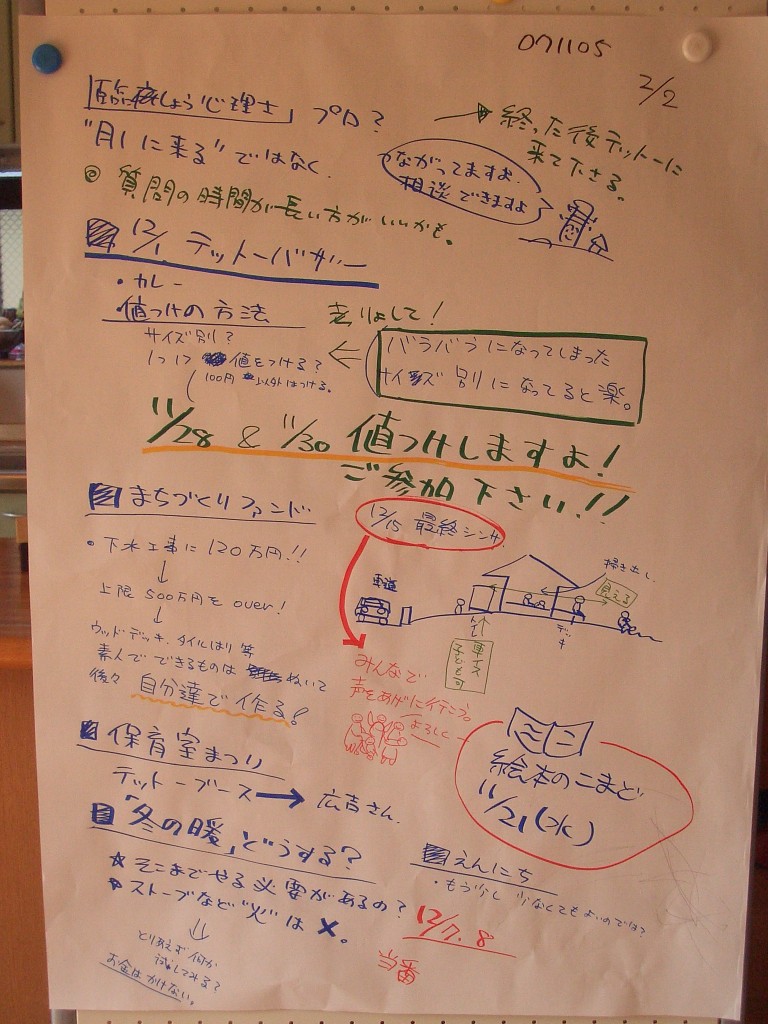 071105
2/2
「臨床しょう心理士」プロ?
"月1に来る"ではなく、
→ 終った後テットーに
来て下さる。
つながってますよ。
相談できますよ
◎ 質問の時間が長い方がいいかも。
12/1 テットーバザー
・カレー
値つけの方法
サイズ別?
1つ1つ 値をつける?
100円 以外はつける。
バラバラになってしまった
サイズ別になってると楽。
11/28 & 11/30 値つけしますよ!
ご参加下さい!!
まちづくりファンド
・下水工事に120万円!!
↓
上限500万円をover!
↓
ウッドデッキ、タイルはり等
素人でできるものは ぬいて
後々 自分達で作る!
12/15 最終シンサ
車道
掃き出し
見える
トイレ
デッキ
車イス
子ども可
みんなで
声をあげに行こう。
よろしく
保育室まつり
テットーブース → 広吉さん
絵本のこまど
11/21(水)
「冬の暖」どうする?
★ そこまでやる必要があるの?
★ ストーブなど"火"は×。
↓
とりあえず何か
試してみる?
お金はかけない。
えんにち
・もう少し少なくてもよいのでは?
12/7.8
当番